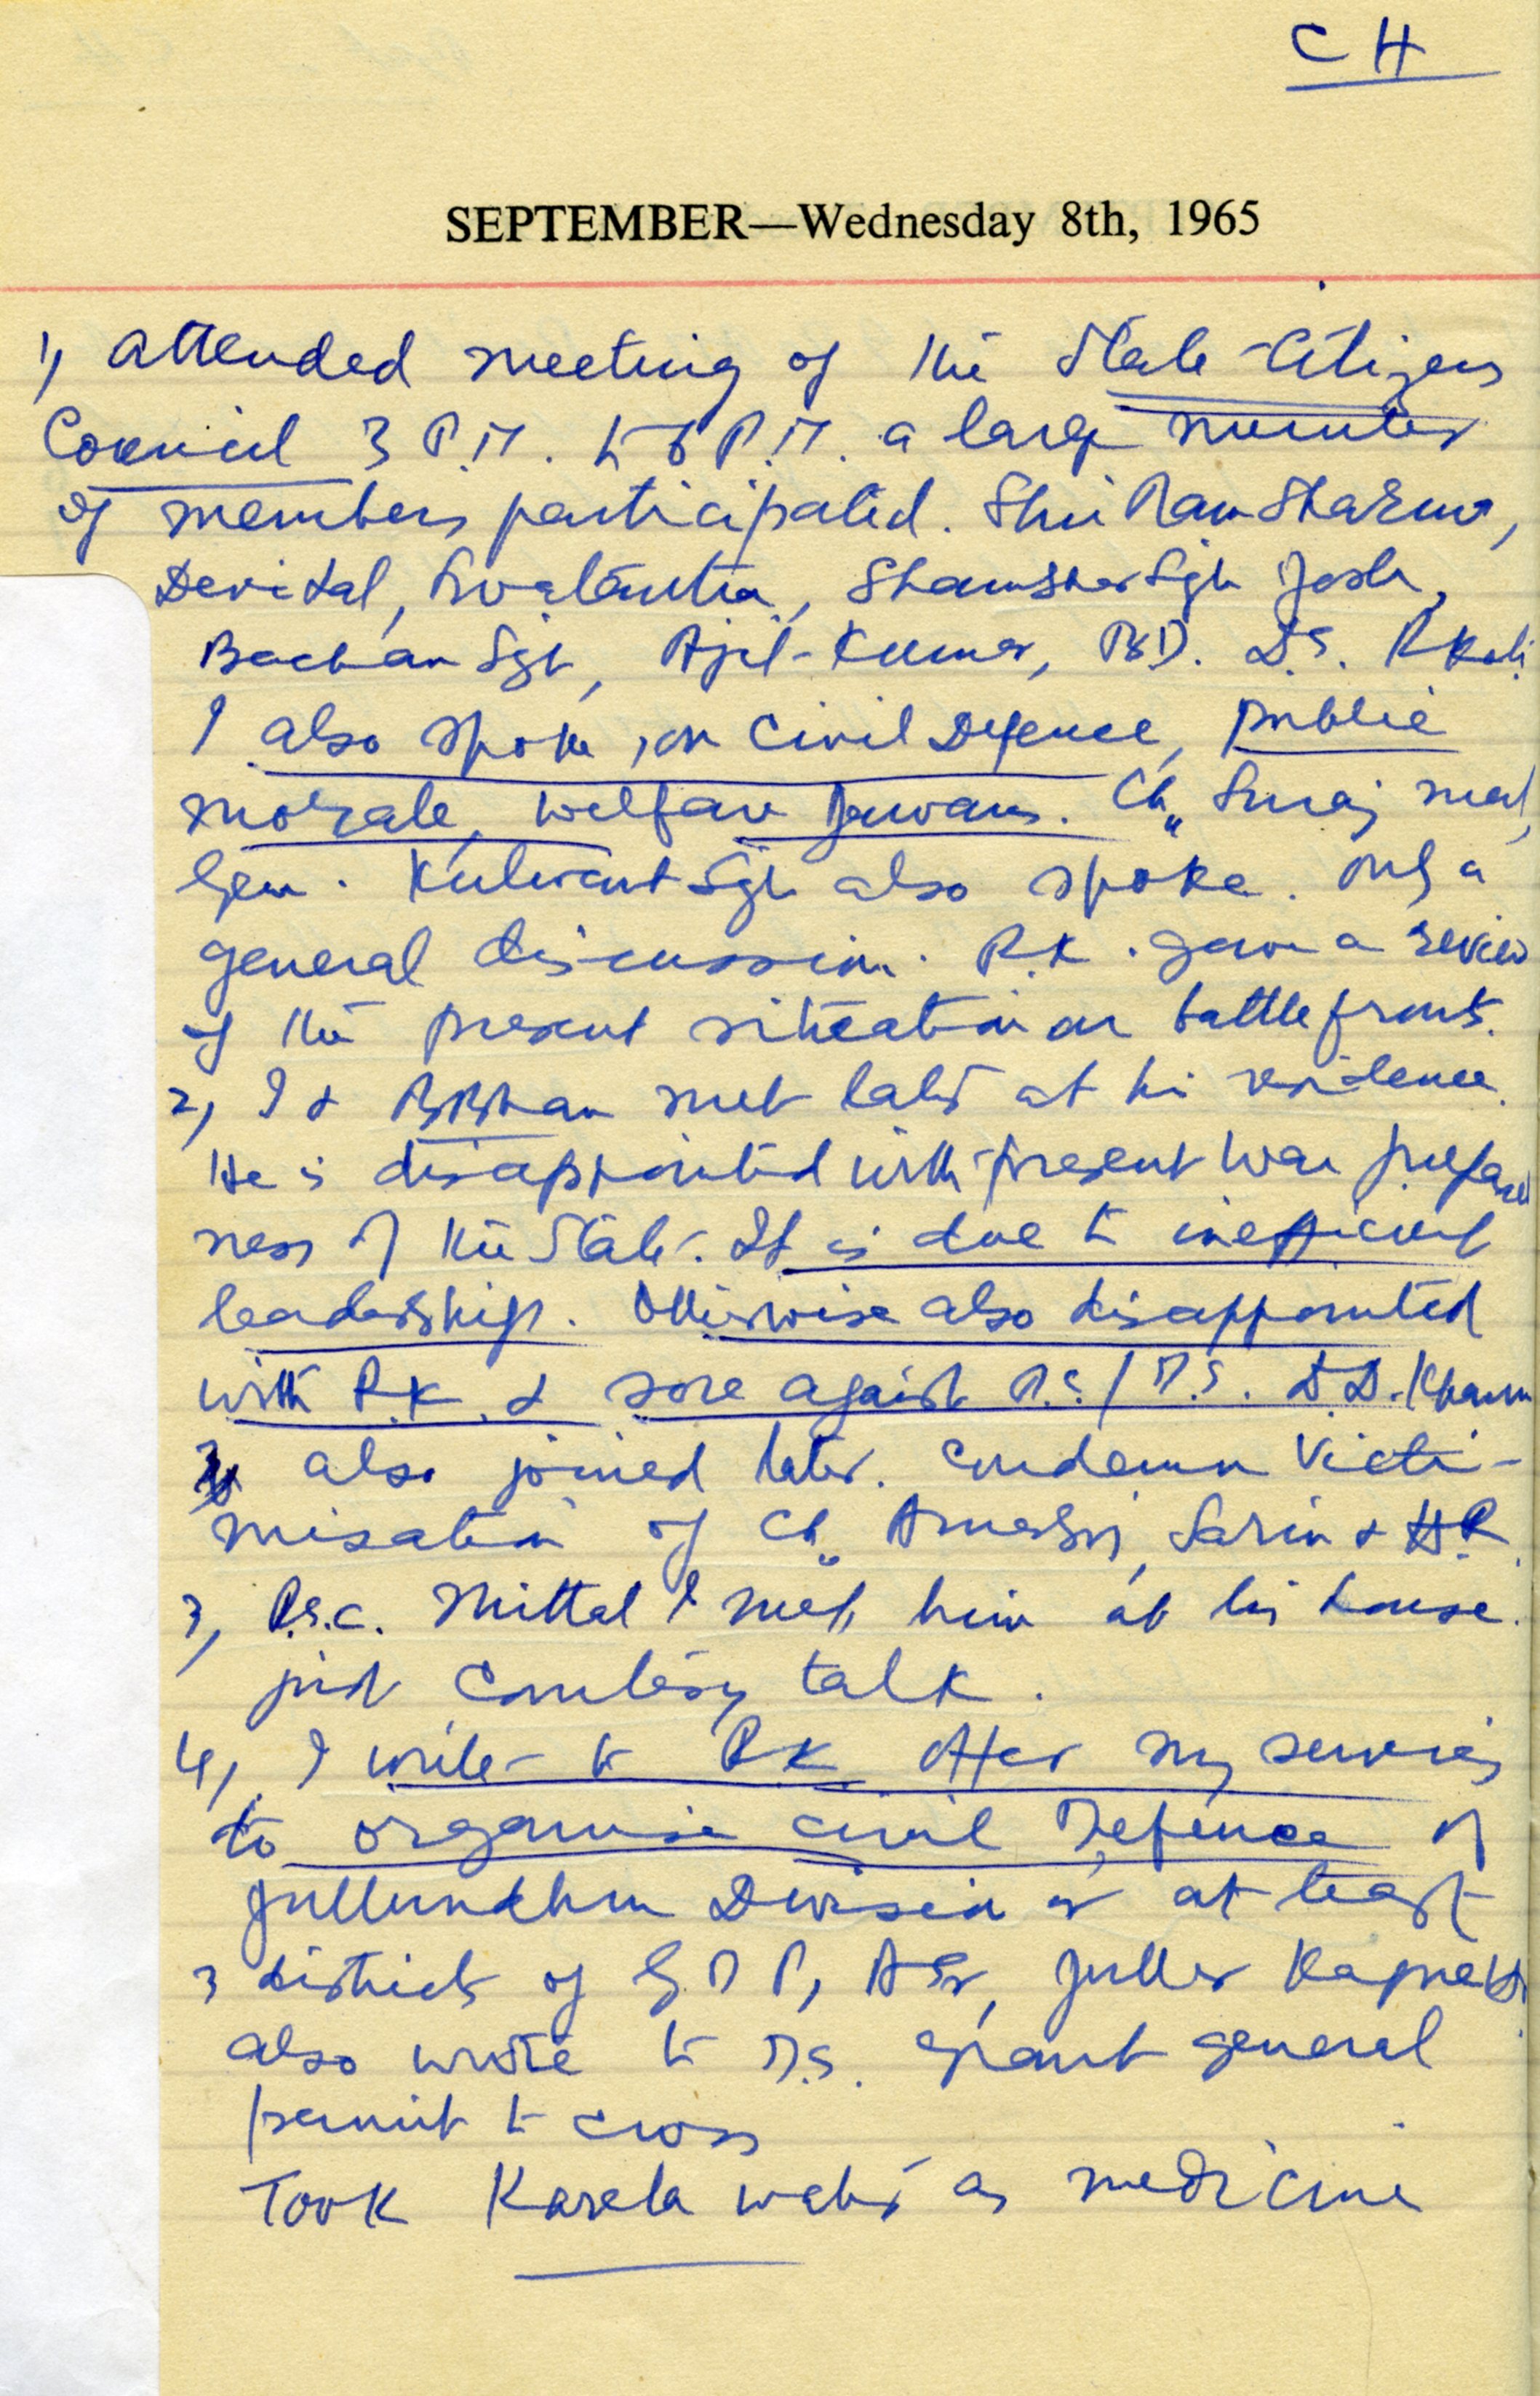 CH
SEPTEMBER—Wednesday 8th, 1965
1, Attended meeting of the State Citizens
Council 3 P.M. to 6 P.M. a large number
of members participated. Shri Ram Sharma,
Devi Lal, Shamsher Sgh Josh,
Bachan Sgh, Ajit Kumar, D.S.
I also spoke, on Civil Defence, public
morale, welfare Jawans. Ch" Suraj mal,
Gen. Kulwant Sgh also spoke. Only a
general discussion. R.K. gave a review
of the present situation on battle fronts.
2, I & met later at his residence.
He is disappointed with present war prepared
ness of the State. It is due to inefficient
leadership. Otherwise also disappointed
with R.K. & sore against D.D. Khanna
also joined later. Condemn Victi-
misation of Ch" Sarin & H.R.
3, P.S.C. Mittal I met him at his house.
just Courtesy talk.
4, I write to R.K. offer my services
to organise civil Defence of
Jullundhur Division or at least
3 districts of G D P, ASr, Juller
also wrote to D.S. grant general
permit to cross
Took Karela water as medicine